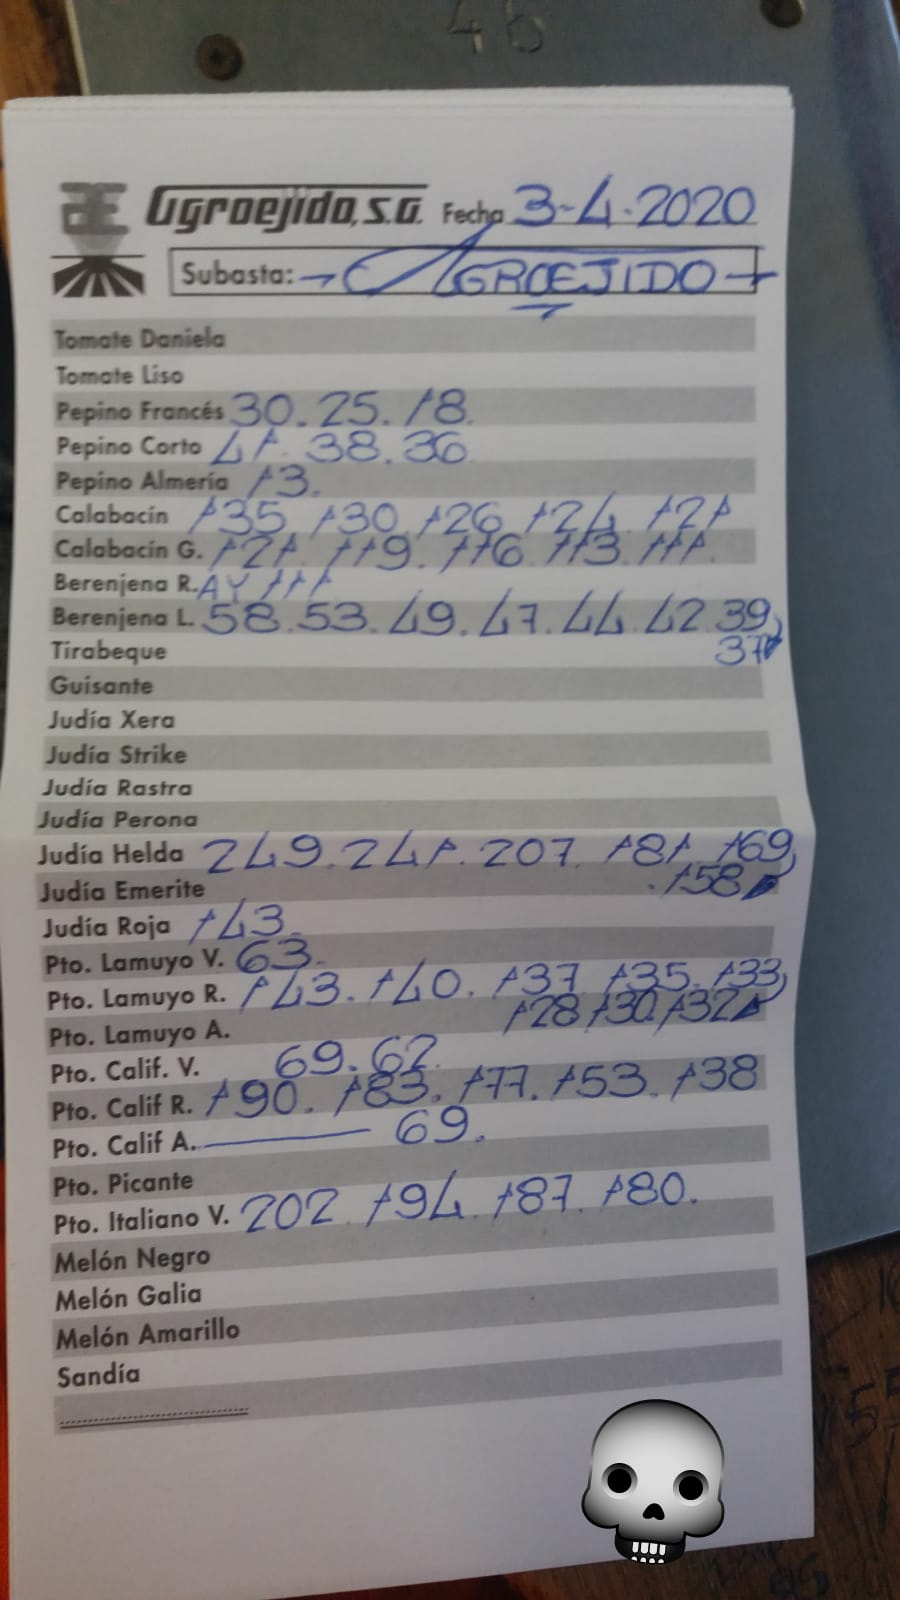 46
Agroejido, S.A. Fecha 3-4-2020
Subasta: → AGROEJIDO
Tomate Daniela
Tomate Liso
Pepino Francés 30. 25. 18.
Pepino Corto 41. 38. 36
Pepino Almería 13.
Calabacín 135. 130. 126. 124. 121
Calabacín G. 121. 119. 116. 113. 111.
Berenjena R. AY 111
Berenjena L. 58. 53. 49. 47. 44. 42. 39
Tirabeque 37
Guisante
Judía Xera
Judía Strike
Judía Rastra
Judía Perona
Judía Helda 249. 241. 207. 181. 169
Judía Emerite 158
Judía Roja 143.
Pto. Lamuyo V. 63.
Pto. Lamuyo R. 143. 140. 137. 135. 133
Pto. Lamuyo A. 128 130. 132
Pto. Calif. V. 69. 62
Pto. Calif R. 190. 183. 177. 153. 138
Pto. Calif A. 69.
Pto. Picante
Pto. Italiano V. 202. 194. 187. 180.
Melón Negro
Melón Galia
Melón Amarillo
Sandía